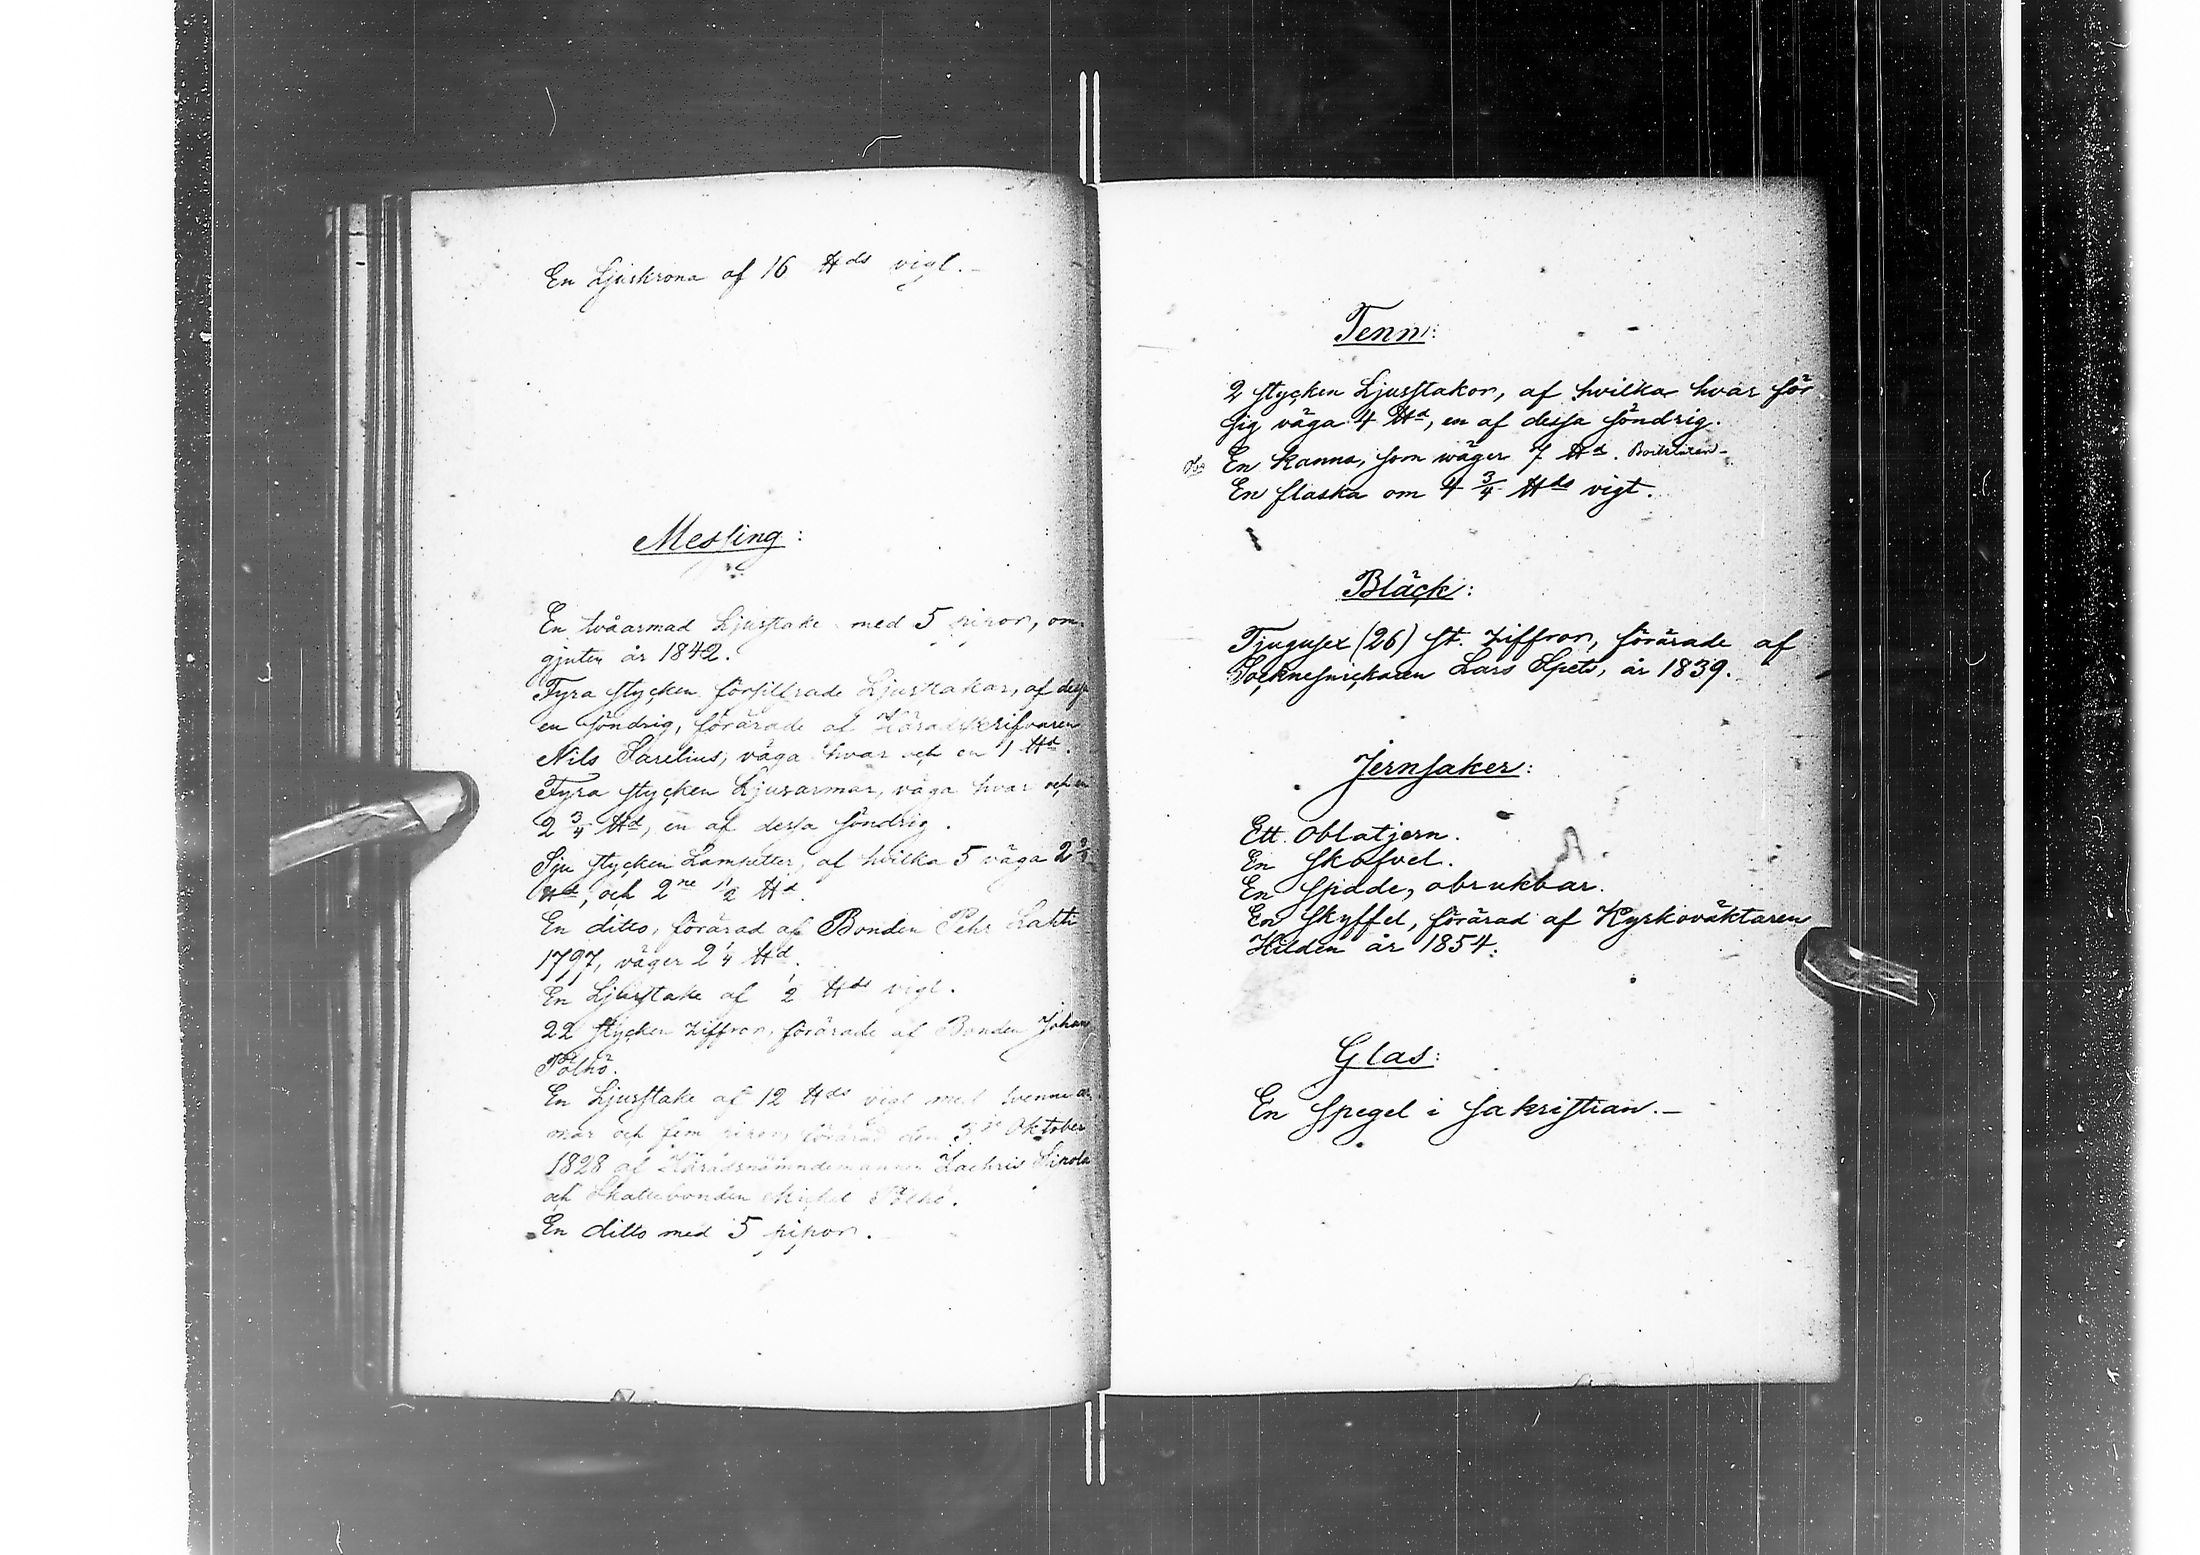 En Ljuskrona af 16 ℔ds vigt.-
Messing:
En tvåarmad Ljusstake med 5 pipor, om-
gjuten år 1842.
Fyra stycken försilfrade Ljusstakar, af dessa
en söndrig, förärade af Häradsskrifvaren
Nils Sarelius, väga hvar och en 1 ℔d.
Fyra stycken Ljusarmar, väga hvar och en
2 3/4 ℔d, en af dessa söndrig.
Sju stycken Lampetter, af hvilka 5 väga 2 3/4
℔d, och 2ne 1/2 ℔d.
En ditto, förärad af Bonden Pehr Lahti
1797, väger 2 1/4 ℔d.
En Ljusstake af 1/2 ℔ds vigt.
22 stycken Ziffror, förärade af Bonden Johan
Pölhö.
En Ljusstake af 12 ℔ds vigt med tvenne ar-
mar och fem pipor, förärad den 3de Oktober
1828 af Häradsnämndemannen Zachris
och Skattebonden Michel Pölhö.
En ditto med 5 pipor.
Tenn:
2 stycken Ljusstakor, af hvilka hvar för
sig väga 4 ℔d, en af dessa söndrig.
En kanna, som wäger 7 ℔d. Bortstulen-
En flaska om 4 3/4 ℔ds vigt.
Bläck:
Tjugusex (26) st. Ziffror, förärade af
Socknesnickaren Lars Spets, år 1839.
Jernsaker:
Ett Oblatjern.
En Skofvel.
En Spade, obrukbar.
En Skyffel, förärad af Kyrkoväktaren
Hildén år 1854.
Glas:
En Spegel i Sakristian.-